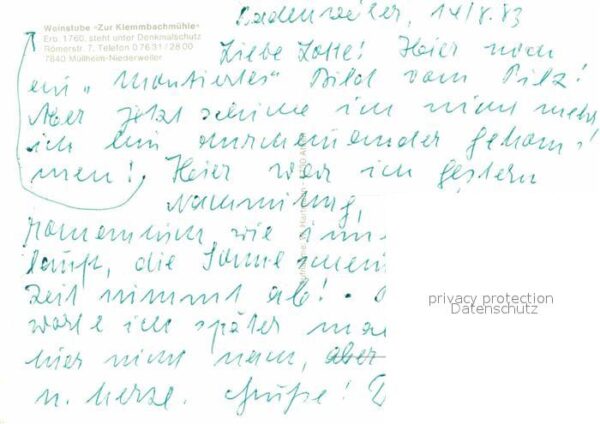 Weinstube »Zur Klemmbachmühle«
Erb. 1760, steht unter Denkmalschutz
Römerstr. 7, Telefon 0 76 31 / 28 00
7840 Müllheim-Niederweiler
Badenweiler, 14/8.83
Liebe Lotte! Hier noch
ein „montiertes" Bild vom Pilz!
Aber jetzt schicke ich nicht mehr
ich bin durcheinander gekom-
men! Hier war ich gestern
Nachmittag,
wie imm
läuft, die Sonne schein
zeit nimmt ab!
ich später
hier nicht nach, aber
u. herzl. Grüße!
privacy protection
Datenschutz